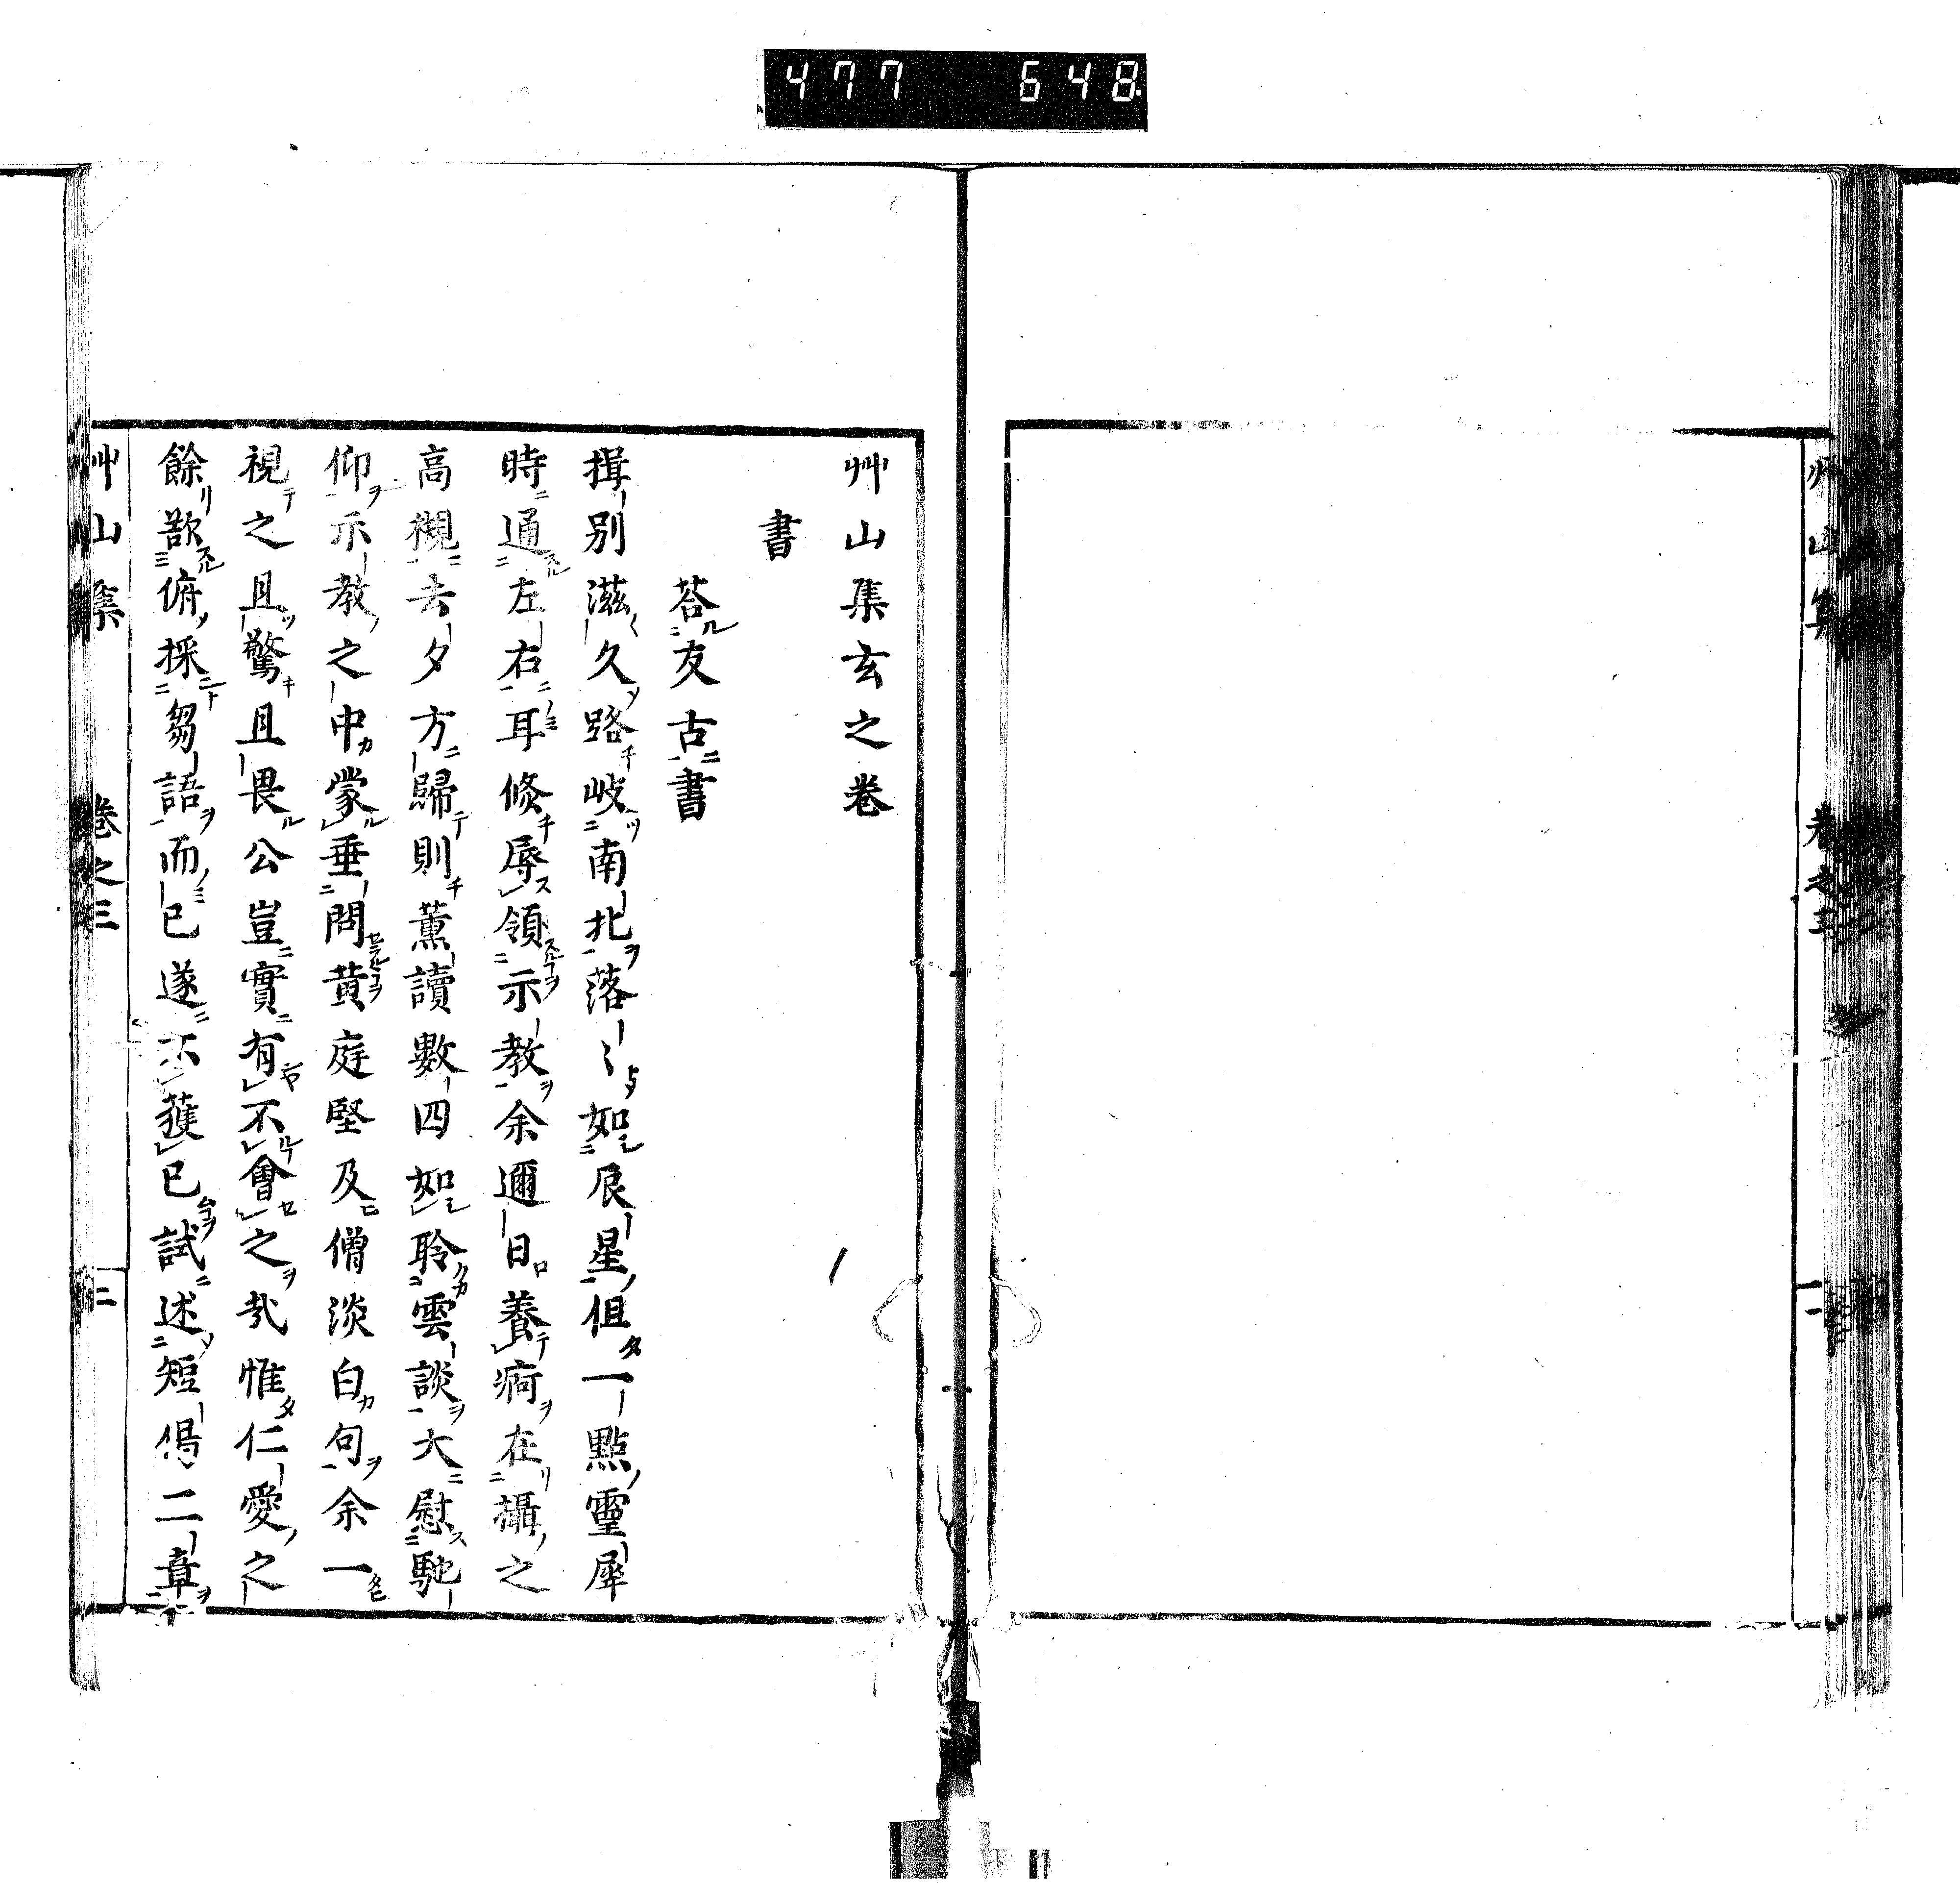 477 648
艸山集
卷之三
二
艸山集玄之卷
書
荅友古書
揖別滋久路岐南北落〻如辰星但一點靈犀
時通左右耳倐辱領示教余邇日養痾在攝之
高襯去夕方歸則薫讀數四如聆雲談大慰馳
仰示教之中蒙垂問黄庭堅及僧淡白句余一
視之且驚且畏公豈實有不會之㢤惟仁愛之
餘欲俯採芻語而已遂不獲已試述短偈二章
艸山集
卷之三
二